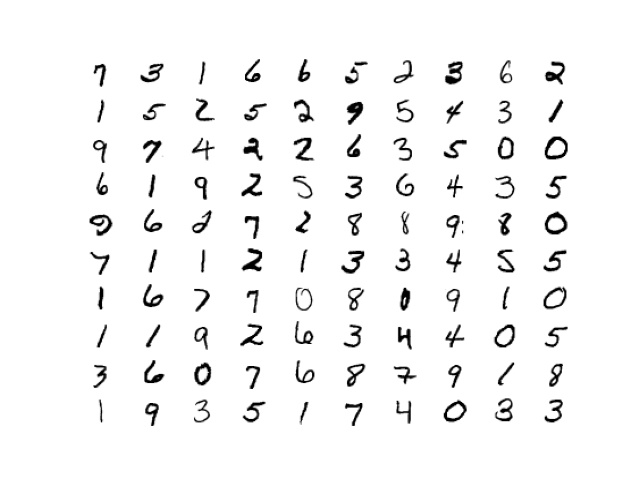 7 3 1 6 6 5 2 3 6 2
1 5 2 5 2 9 5 4 3 1
9 7 4 2 2 6 3 5 0 0
6 1 9 2 5 3 6 4 3 5
9 6 2 7 2 8 8 9 8 0
7 1 1 2 1 3 3 4 5 5
1 6 7 7 0 8 0 9 1 0
1 1 9 2 6 3 4 4 0 5
3 6 0 7 6 8 7 9 1 8
1 9 3 5 1 7 4 0 3 3